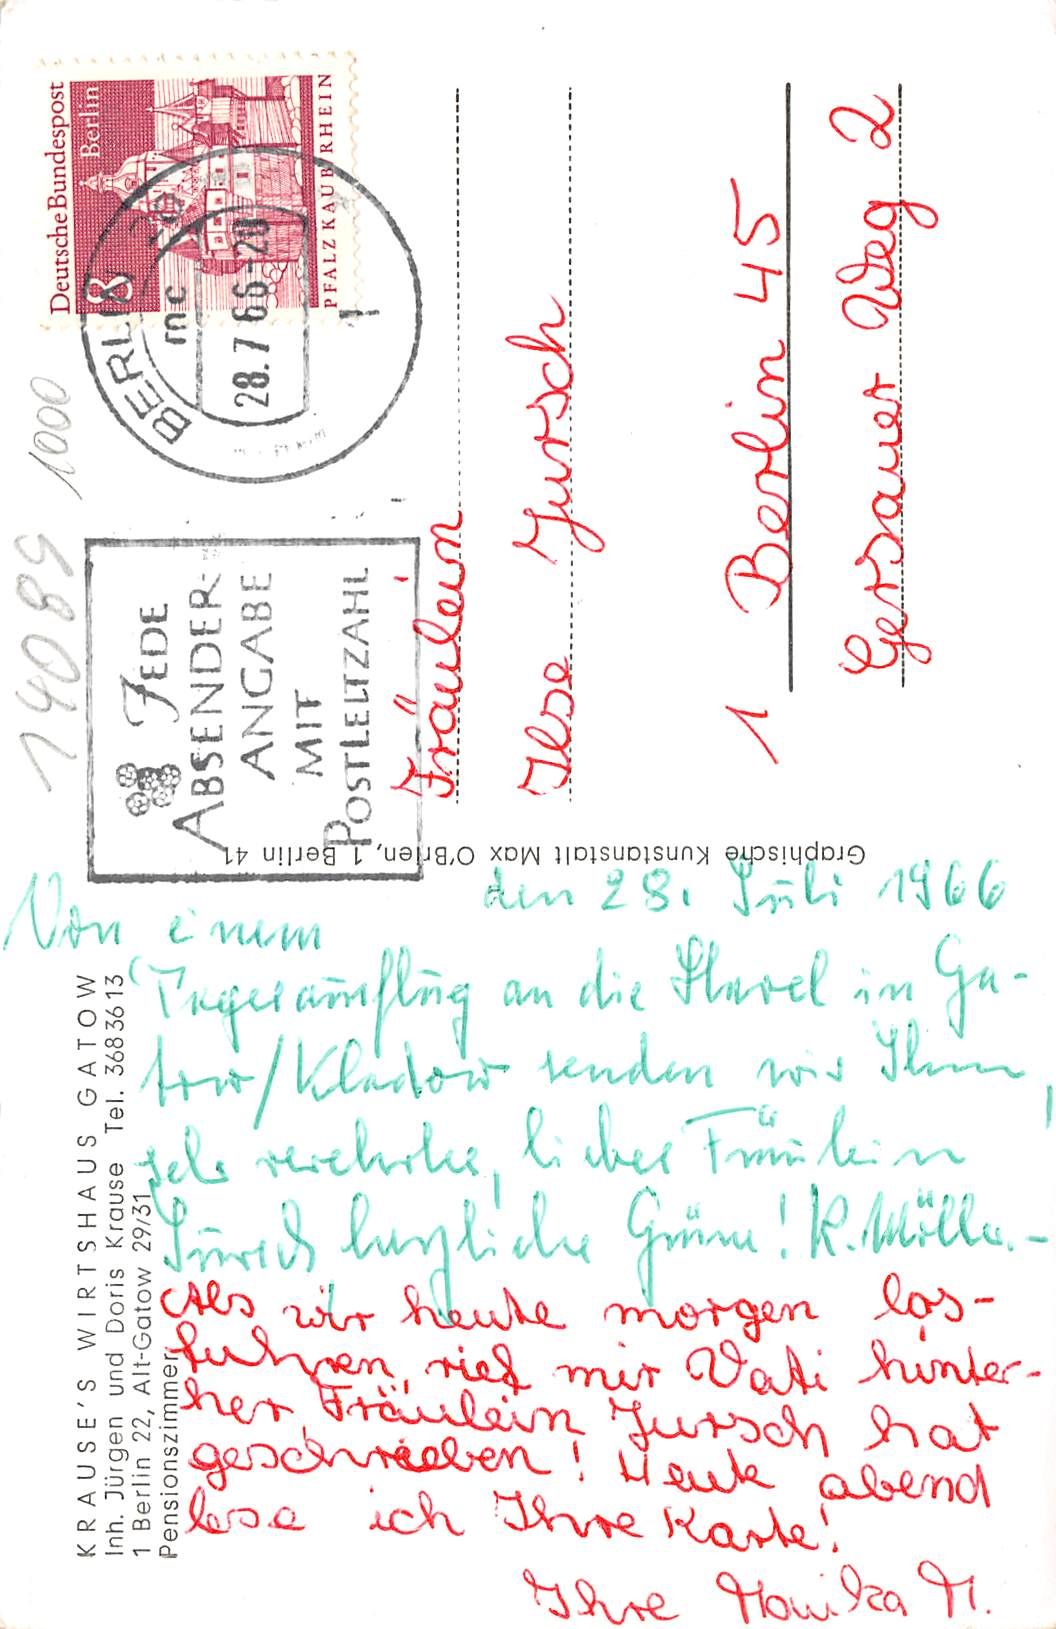 Deutsche Bundespost
Berlin
8
PFALZ KAUB/RHEIN
BERLIN
mc
28.7.66-20
14089 1000
JEDE
ABSENDER-
ANGABE
MIT
POSTLEITZAHL
Fräulein
Ilse Jursch
1 Berlin 45
Gersauer Weg 2
Graphische Kunstanstalt Max O'Brien, 1 Berlin 41
KRAUSE'S WIRTSHAUS GATOW
Inh. Jürgen und Doris Krause Tel. 3683613
1 Berlin 22, Alt-Gatow 29/31
Pensionszimmer
den 28. Juli 1966
Von einem
Tagesausflug an die Havel in Ga-
tow/Kladow senden wir Ihnen,
sehr verehrtes, liebes Fräulein
Jursch herzliche Grüße! K. Möller.-
Als wir heute morgen los-
fuhren, rief mir Vati hinter-
her, Fräulein Jursch hat
geschrieben! Heute abend
lese ich Ihre Karte!
Ihre Monika M.